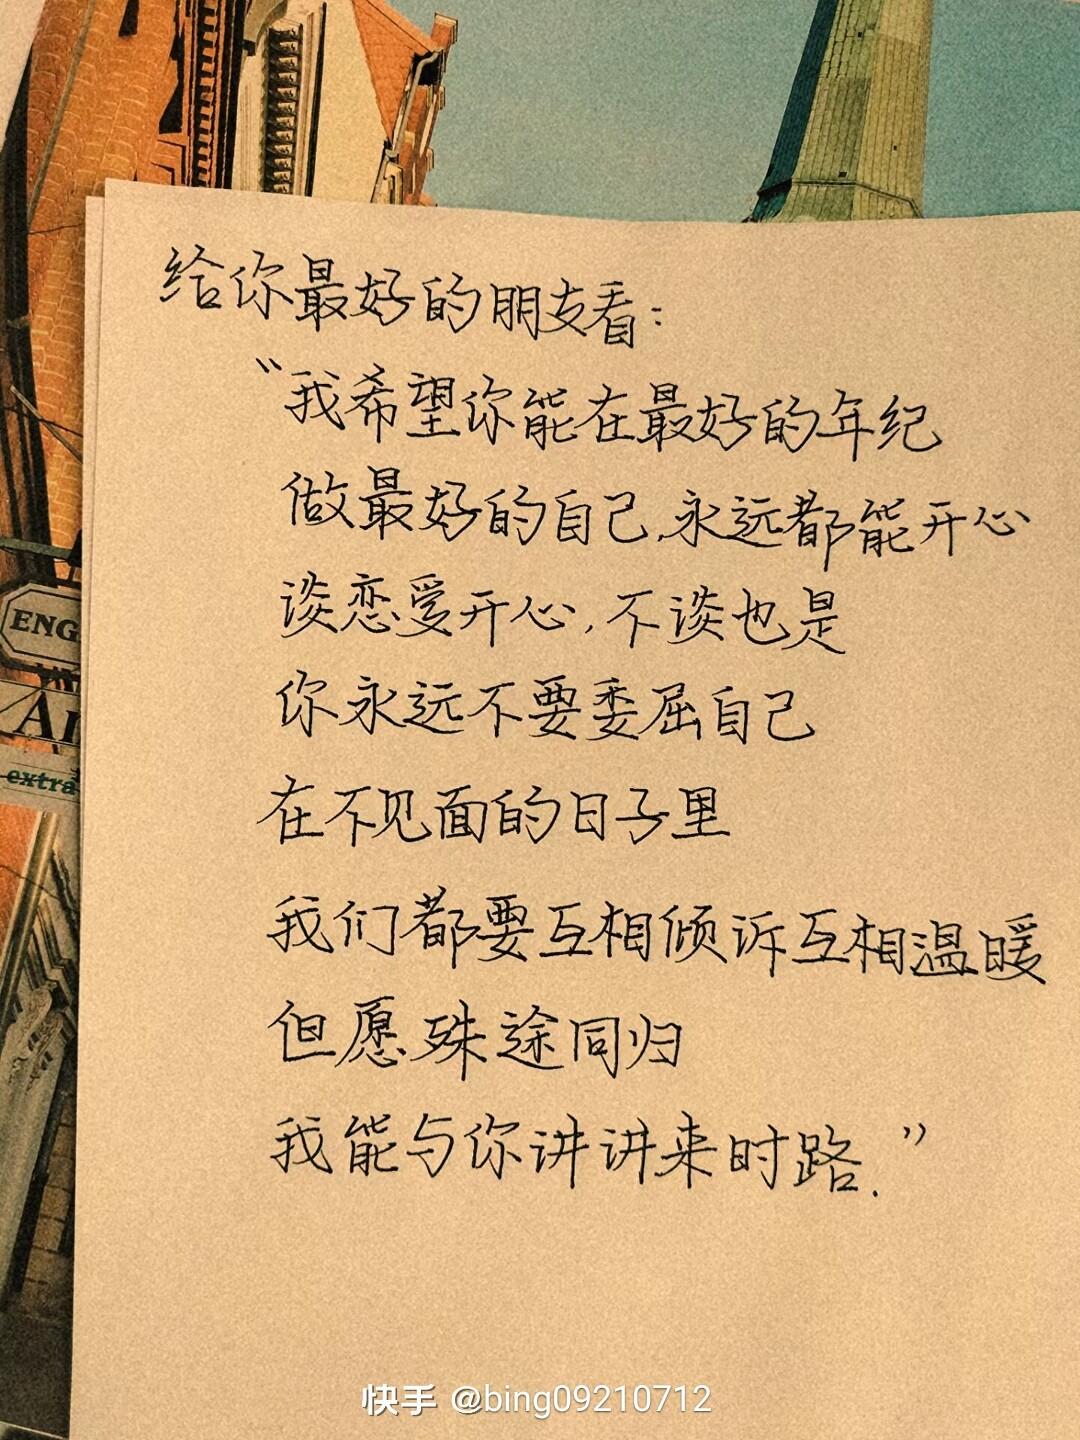 给你最好的朋友看：
“我希望你能在最好的年纪
做最好的自己,永远都能开心
谈恋爱开心,不谈也是
你永远不要委屈自己
在不见面的日子里
我们都要互相倾诉互相温暖
但愿殊途同归
我能与你讲讲来时路.”
ENG
extra
快手 @bing09210712